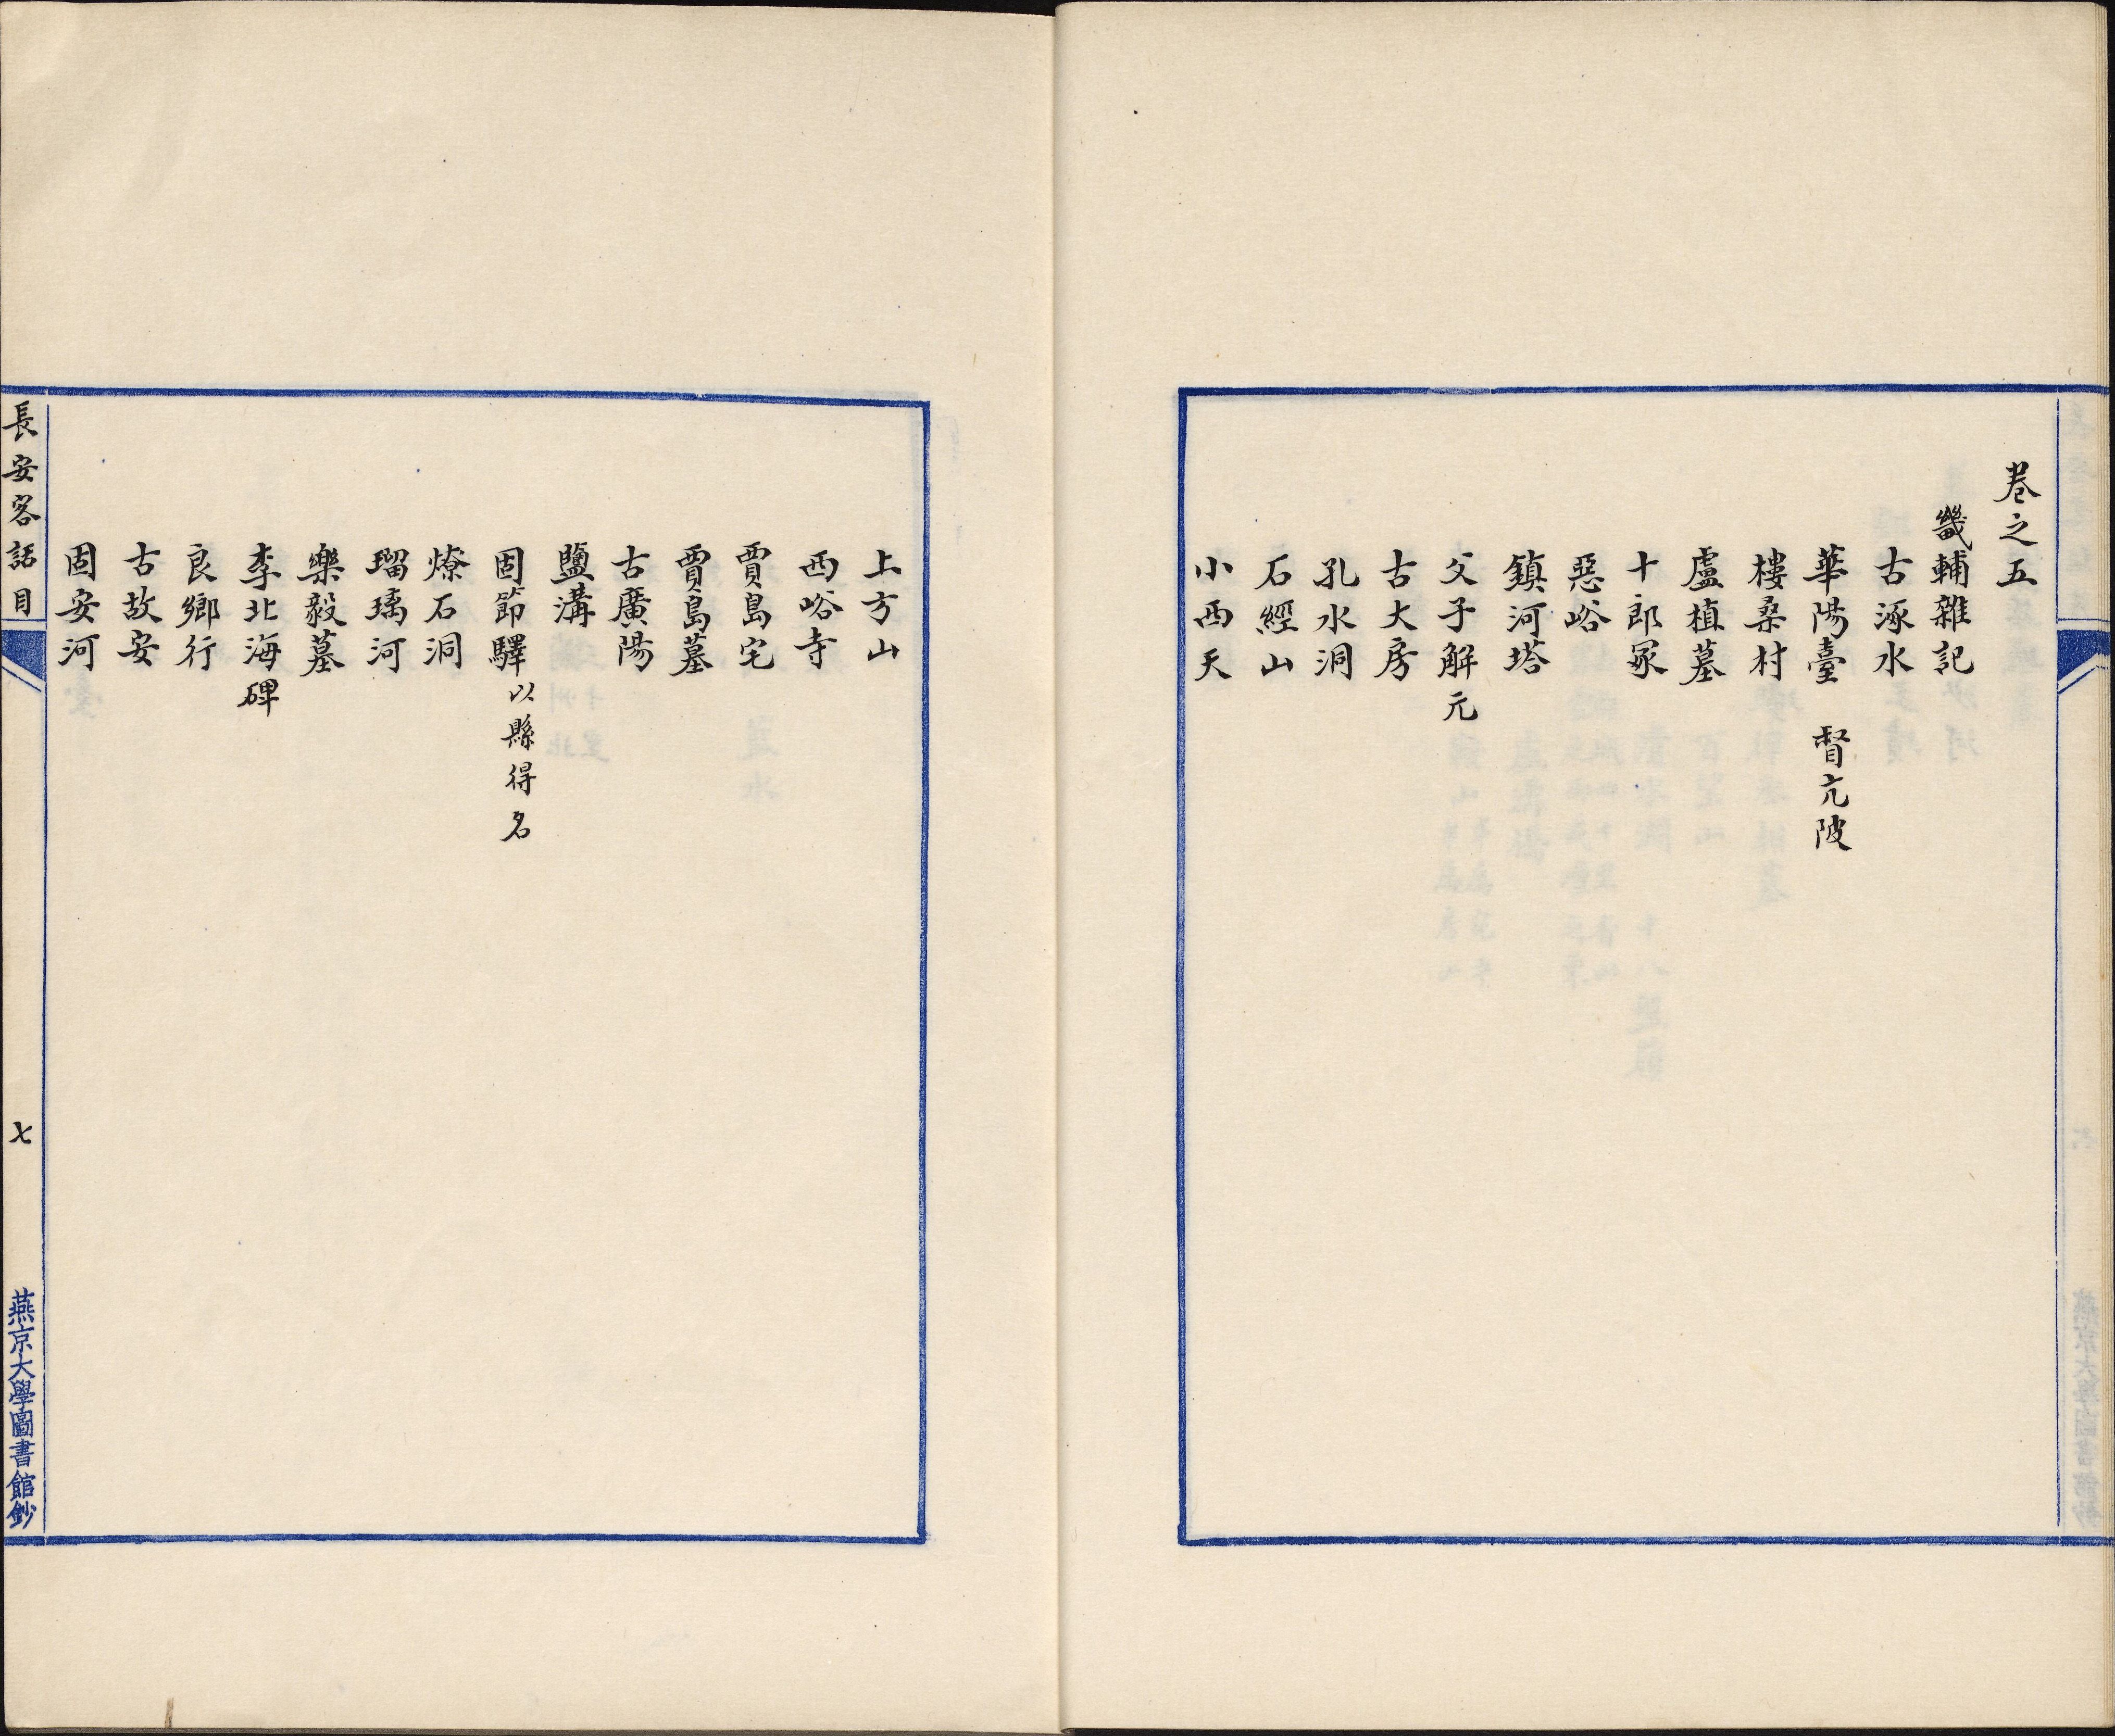 卷之五
畿輔雜記
古涿水
華陽臺 督亢陂
樓桑村
盧植墓
十郎冢
惡峪
鎮河塔
父子解元
古大房
孔水洞
石經山
小西天
上方山
西峪寺
賈島宅
賈島墓
古廣陽
鹽溝
固節驛以縣得名
燎石洞
瑠璃河
樂毅墓
李北海碑
良鄉行
古故安
固安河
長安客話目
七
燕京大學圖書館鈔